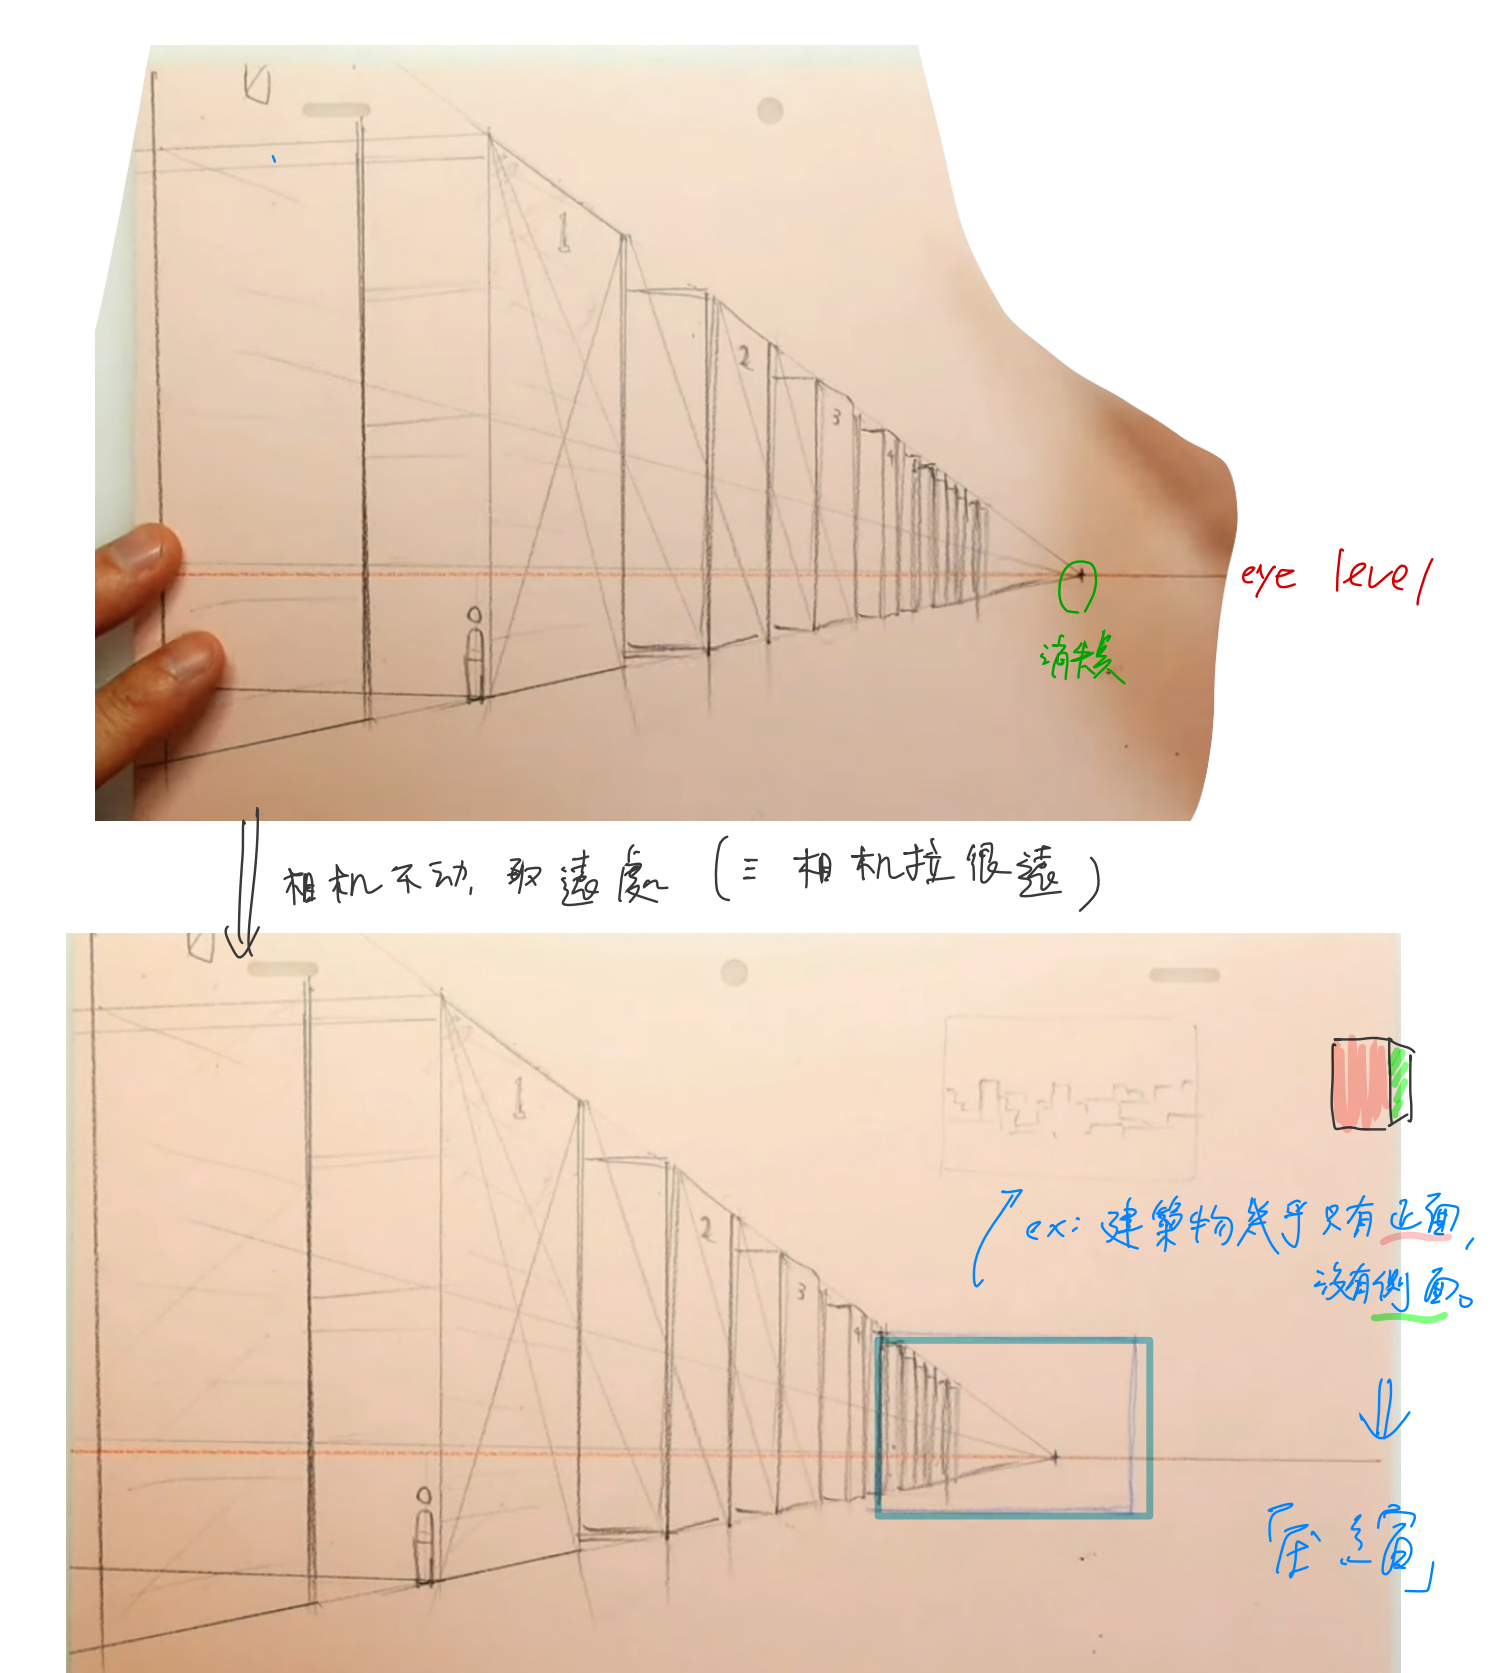 1
2
3
4
eye level
消失點
相机不动, 取遠處 (≡ 相机拉很遠)
1
2
3
4
ex: 建築物幾乎只有正面,
沒有側面。
「压縮」